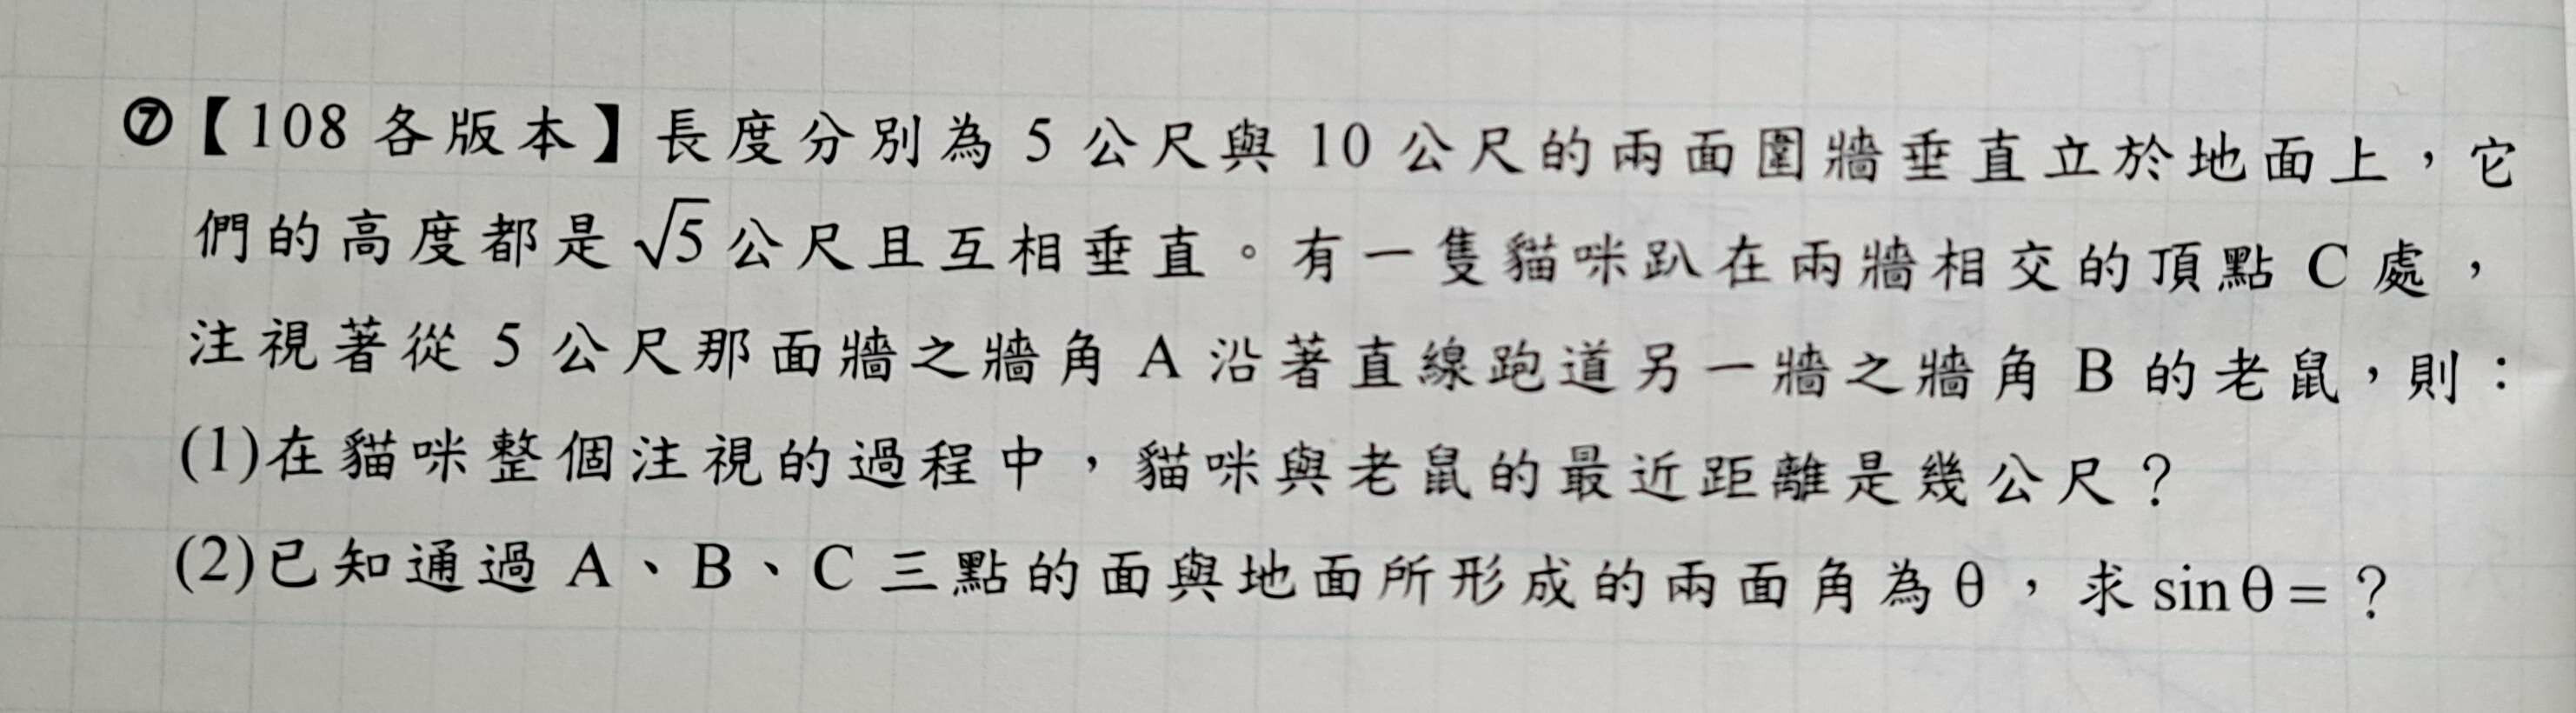 ⑦【108 各版本】長度分別為 5 公尺與 10 公尺的兩面圍牆垂直立於地面上，它
們的高度都是√5公尺且互相垂直。有一隻貓咪趴在兩牆相交的頂點 C 處，
注視著從 5 公尺那面牆之牆角 A 沿著直線跑道另一牆之牆角 B 的老鼠，則：
(1)在貓咪整個注視的過程中，貓咪與老鼠的最近距離是幾公尺？
(2)已知通過 A、B、C 三點的面與地面所形成的兩面角為θ，求 sinθ=？